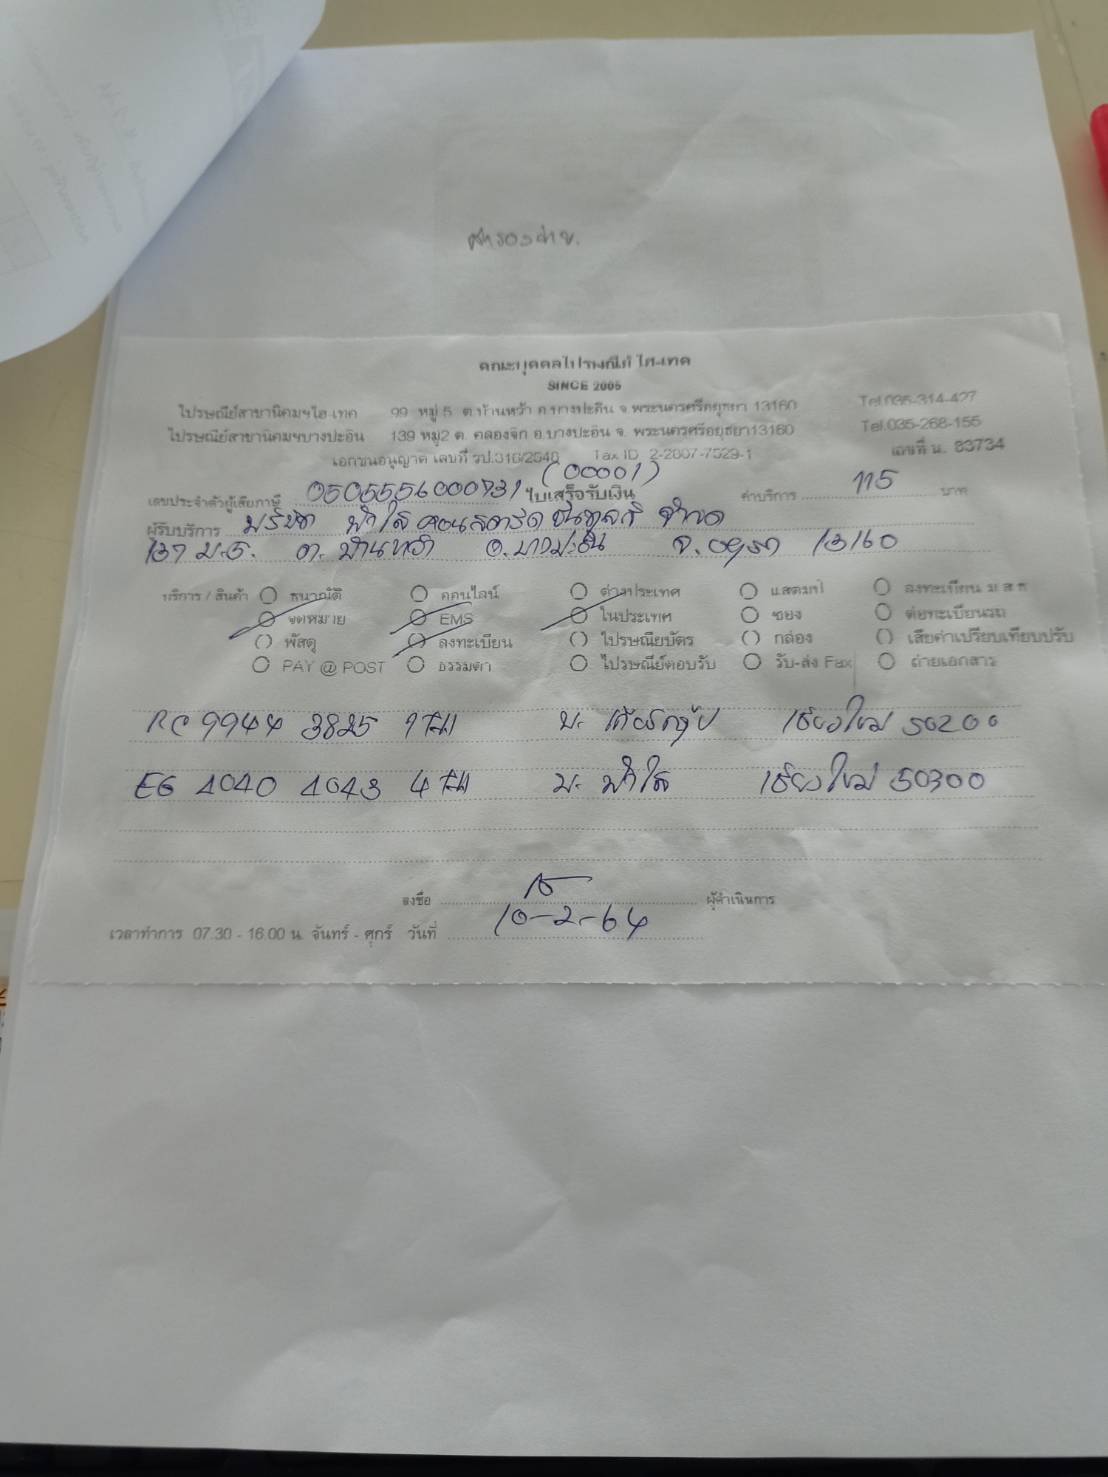 สำรองจ่าย.
คณะบุคคลไปรษณีย์ ไฮ-เทค
SINCE 2005
ไปรษณีย์สาขานิคมฯไฮ เทค 99 หมู่ 5 ต.บ้านหว้า อ.บางปะอิน จ.พระนครศรีอยุธยา 13160 Tel.035-314-427
ไปรษณีย์สาขานิคมฯบางปะอิน 139 หมู่2 ต. คลองจิก อ.บางปะอิน จ. พระนครศรีอยุธยา13160 Tel.035-268-155
เอกชนอนุญาต เลขที่ รป.316/2546 Tax ID 2-2007-7529-1 เลขที่ น. 83734
(00001)
เลขประจำตัวผู้เสียภาษี 0505556000731 ใบเสร็จรับเงิน ค่าบริการ 115 บาท
ผู้รับบริการ บริษัท ฟ้าใส คอนสตรัค ชั่น จำกัด
137 ม.5. ต. บ้านหว้า อ.บางปะอิน จ.อยุธยา 13160
บริการ / สินค้า ธนาณัติ ออนไลน์ ต่างประเทศ แสตมป์ ลงทะเบียน ม ส ท
จดหมาย EMS ในประเทศ ซอง ต่อทะเบียนรถ
พัสดุ ลงทะเบียน ไปรษณียบัตร กล่อง เสียค่าเปรียบเทียบปรับ
PAY @ POST ธรรมดา ไปรษณีย์ตอบรับ รับ-ส่ง Fax ถ่ายเอกสาร
RC 9944 3825 1 TH บ. เชียงใหม่ 50200
EG 4040 4043 4 TH บ. ฟ้าใส เชียงใหม่ 50300
ลงชื่อ ผู้ดำเนินการ
เวลาทำการ 07.30 - 16.00 น. จันทร์ - ศุกร์ วันที่ 10-2-64